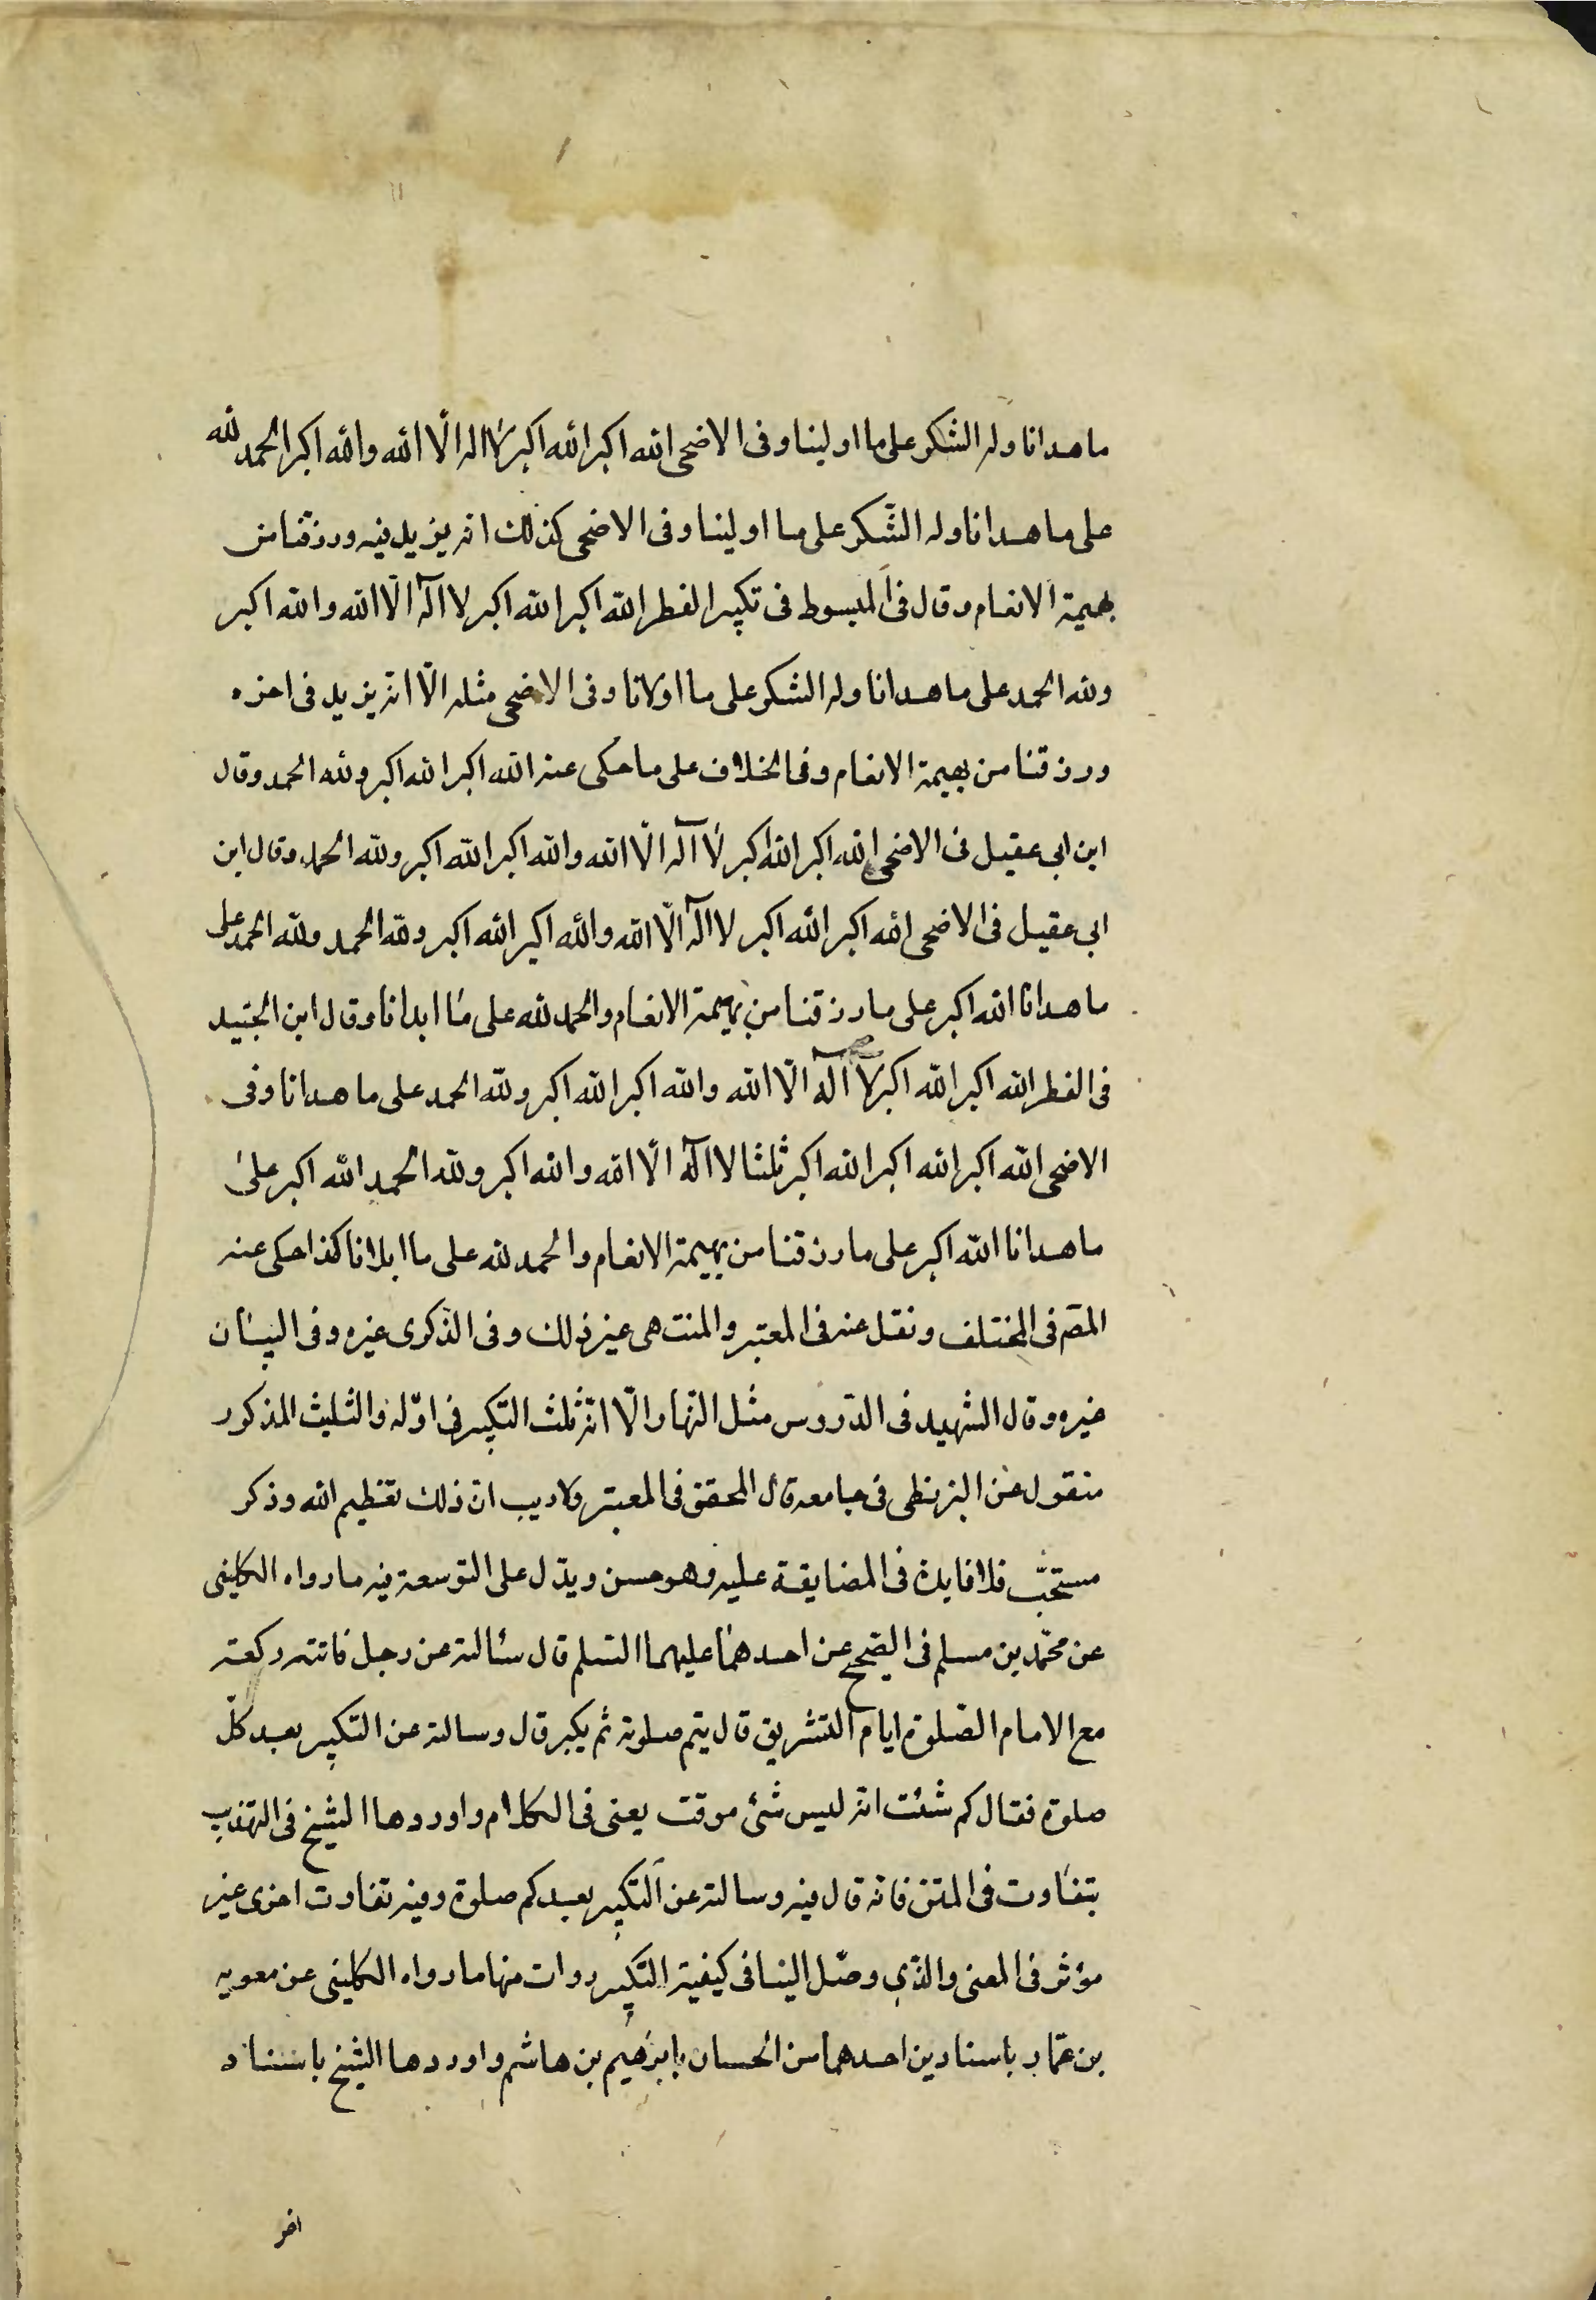 ما هدانا وله الشكر على ما اولينا وفى الاضحى الله اكبر الله اكبر لا اله الّا الله والله اكبر الحمد لله
على ما هدانا وله الشّكر على ما اولينا وفى الاضحى كذلك انه يزيد فيه ورزقنا من
بهيمة الانعام وقال فى المبسوط فى تكبير الفطر الله اكبر الله اكبر لا اله الّا الله والله اكبر
ولله الحمد على ما هدانا وله الشكر على ما اولانا وفى الاضحى مثله الّا انه يزيد فى اخره
ورزقنا من بهيمة الانعام وفى الخلاف على ما حكى عنه الله اكبر الله اكبر ولله الحمد وقال
ابن ابى عقيل فى الاضحى الله اكبر الله اكبر لا اله الّا الله والله اكبر الله اكبر ولله الحمد وقال ابن
ابى عقيل فى الاضحى الله اكبر الله اكبر لا اله الّا الله والله اكبر الله اكبر ولله الحمد ولله الحمد على
ما هدانا الله اكبر على ما رزقنا من بهيمة الانعام والحمد لله على ما ابلانا وقال ابن الجنيد
فى الفطر الله اكبر الله اكبر لا اله الّا الله والله اكبر الله اكبر ولله الحمد على ما هدانا وفى
الاضحى الله اكبر الله اكبر الله اكبر ثلثا لا اله الّا الله والله اكبر ولله الحمد الله اكبر على
ما هدانا الله اكبر على ما رزقنا من بهيمة الانعام والحمد لله على ما ابلانا كذا حكى عنه
المصّ فى المختلف ونقل عنه فى المعتبر والمنتهى غير ذلك وفى الذّكرى غيره وفى البيان
غيره وقال الشهيد فى الدّروس مثل النّهار الّا انّه ثلث التّكبير فى اوّله والثليث المذكور
منقول عن البزنطى فى جامعه قال المحقق فى المعبتر ولا ريب ان ذلك تعظيم الله وذكر
مستحبّ فلا فايدة فى المضايقة عليه وهو حسن ويدّل على التوسعة فيه ما رواه الكلينى
عن محمّد بن مسلم فى الصّحيح عن احدهما عليهما السّلم قال سئالته عن رجل فاتته ركعة
مع الامام الصّلوة ايام التشريق قال يتم صلوته ثم يكبر قال وسالته عن التكبير بعد كلّ
صلوة فقال كم شئت انه ليس شئ موقت يعنى فى الكلام واوردها الشيخ فى التهذيب
بتفاوت فى المتن فانه قال فيه وسالته عن التكبير بعد كم صلوة وفيه تفاوت اخرى غير
مؤثر فى المعنى والذّى وصّل الينا فى كيفية التّكبير روات منها ما رواه الكلينى عن معويه
بن عمّار باسنادين احدهما من الحسان بابرهيم بن هاشم واوردها الشيخ باسناد
اخر